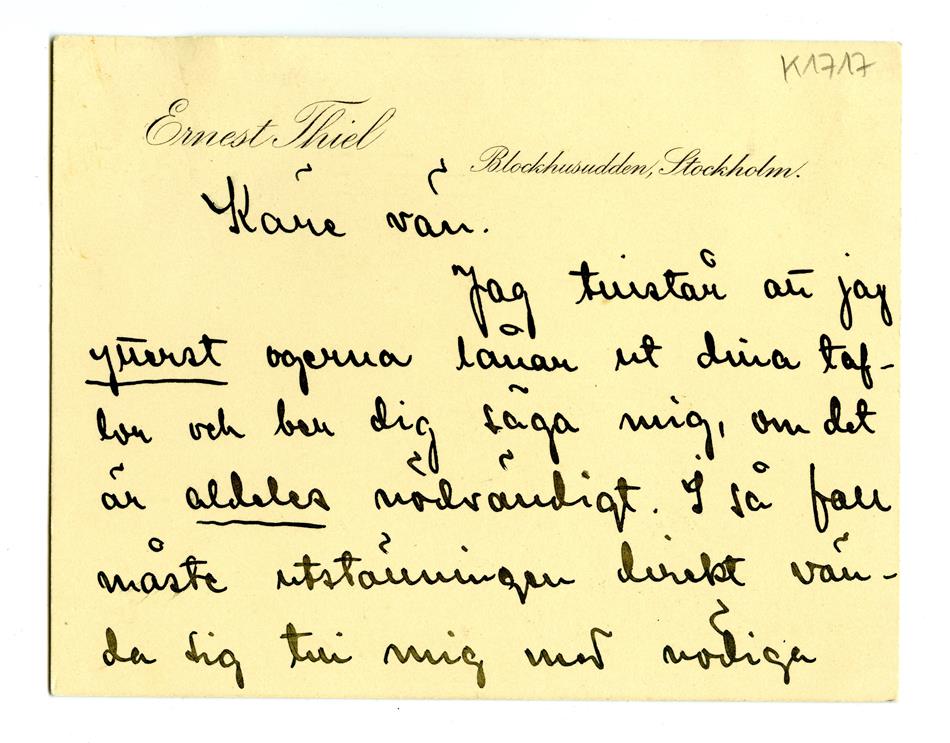 K1717
Ernest Thiel
Blockhusudden, Stockholm.
Käre vän.
Jag tillstår att jag
ytterst ogerna lånar ut dina taf-
lor och ber dig säga mig, om det
är aldeles nödvändigt. I så fall
måste utställningen direkt vän-
da sig till mig med nödiga